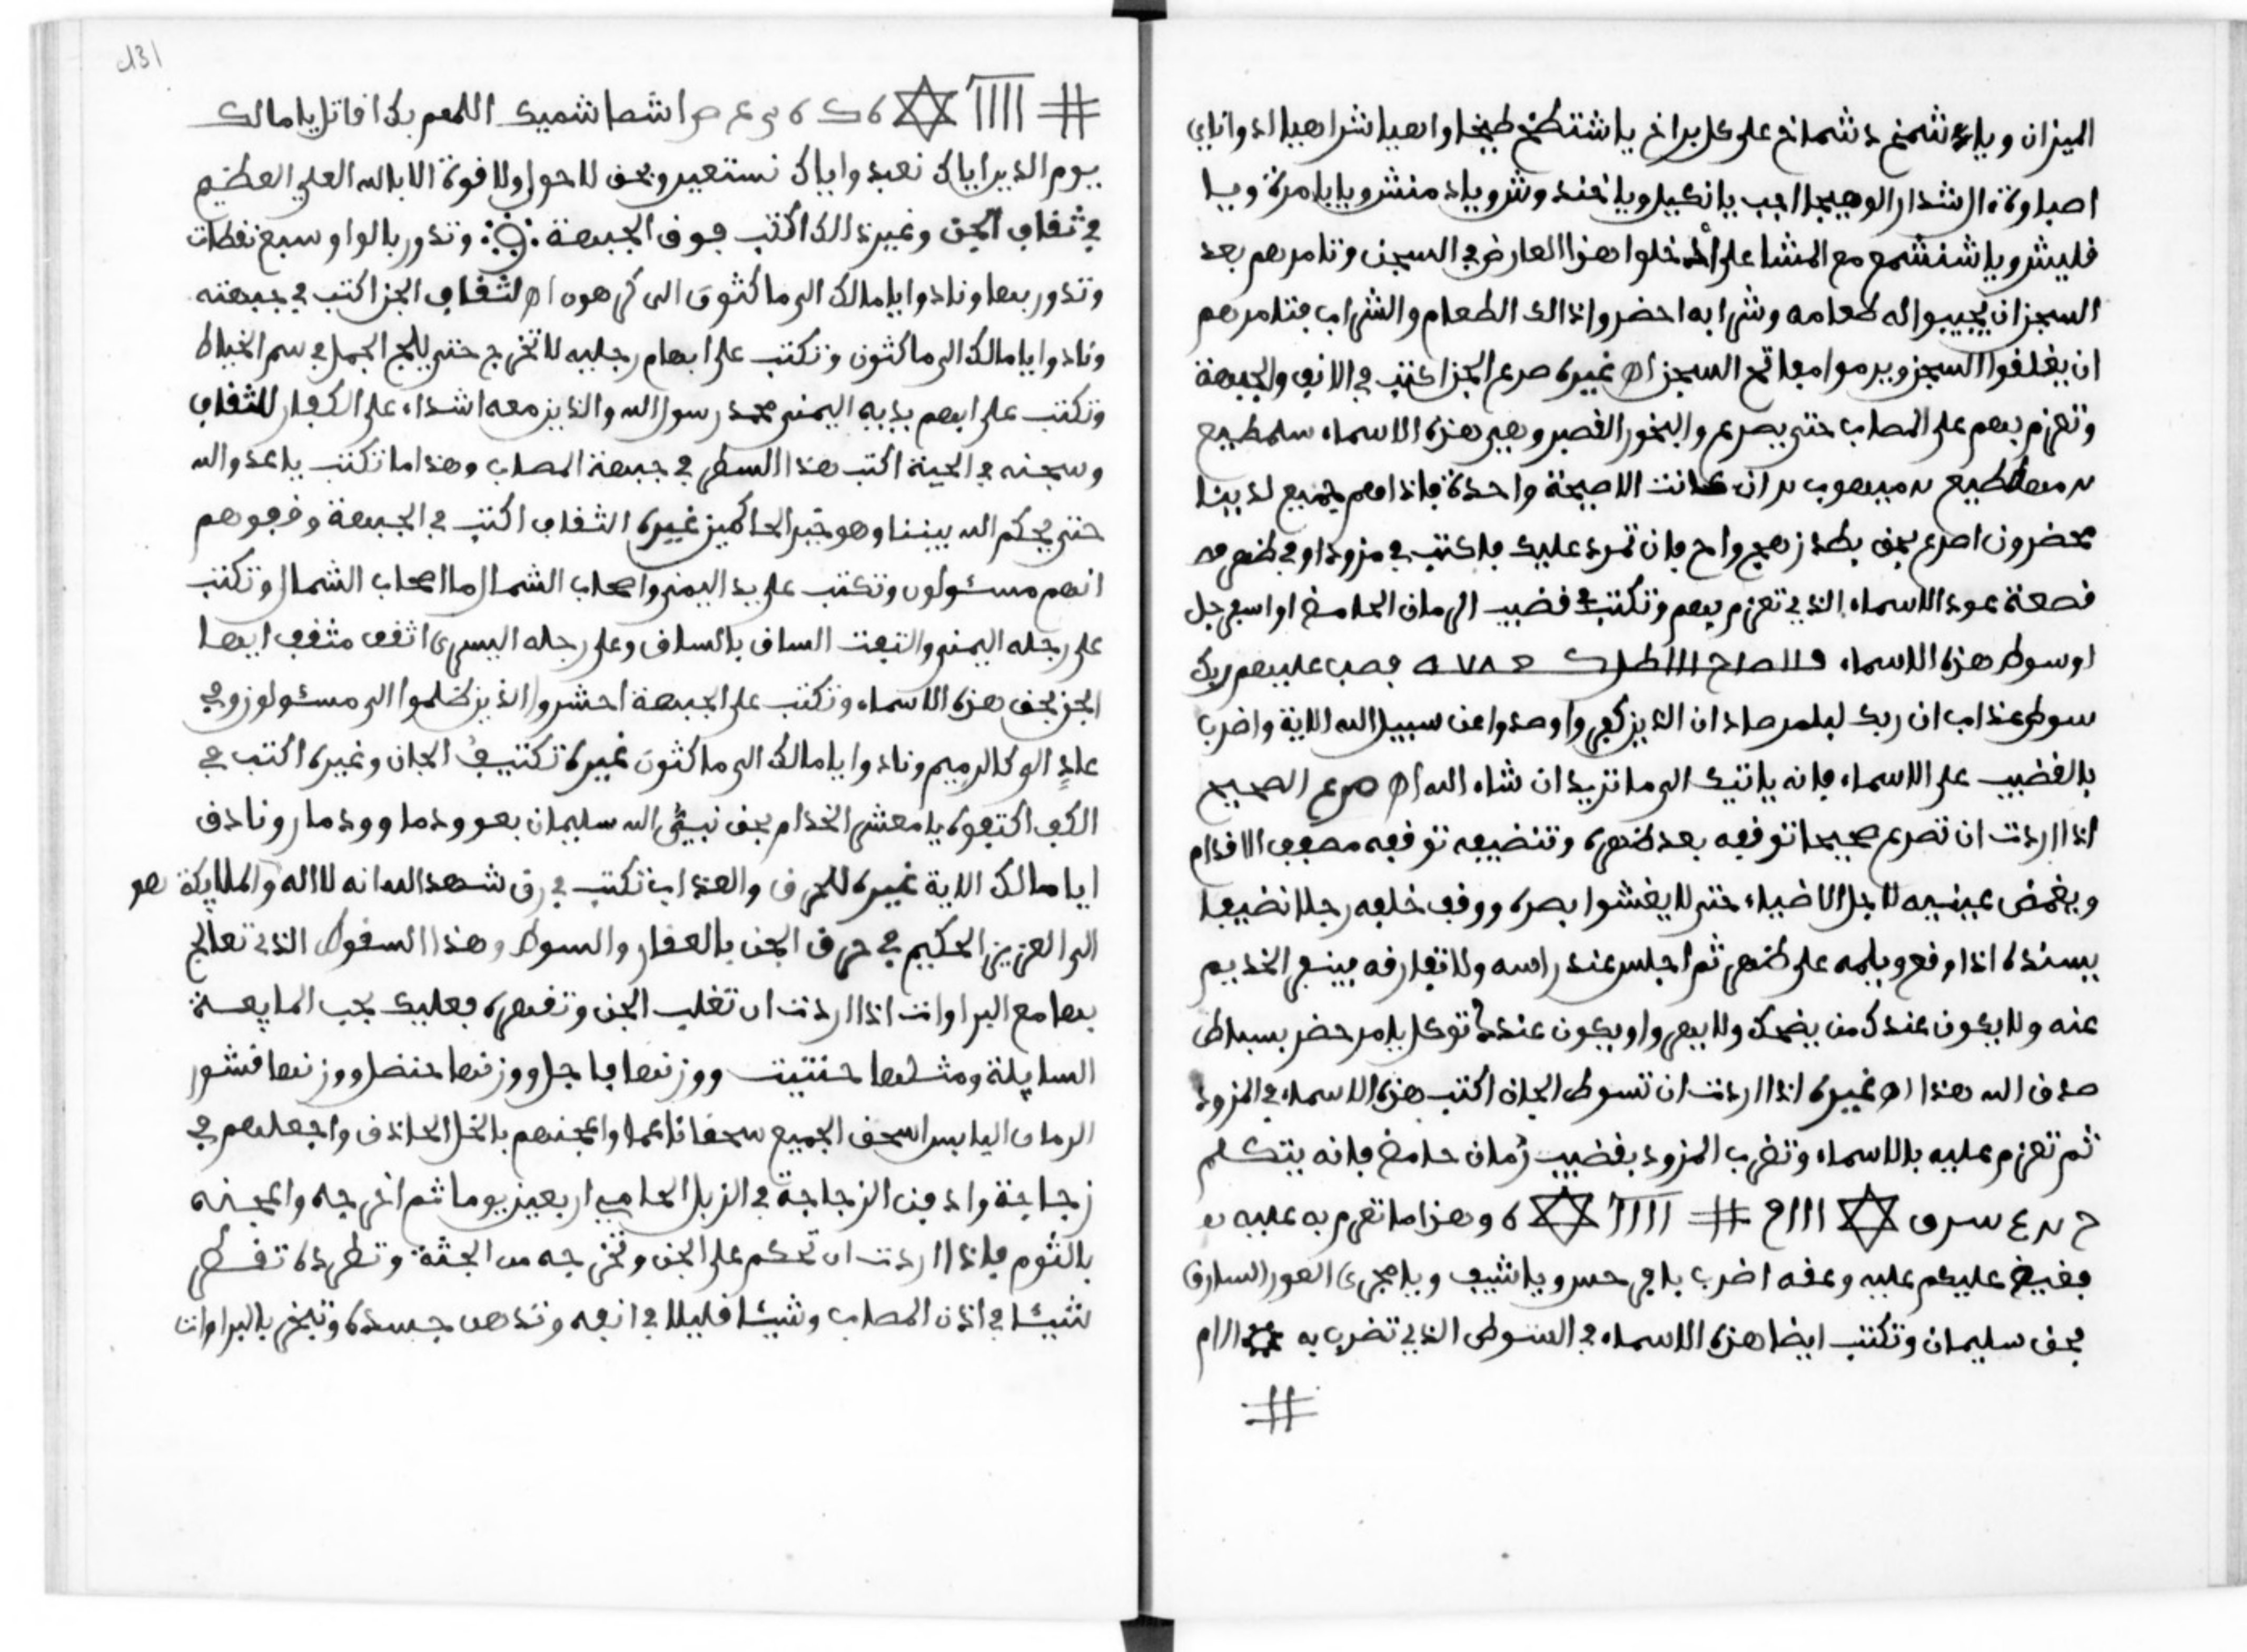 الميزان ويا شمخ دشماخ على كل براخ يا شتطخ طيخا واهيا شراهيا ادواناي
اصباوة ال الشدا الوهيجا اجب يا نكيل ويا خندوش ويا دمنش ويا يا مرة ويا
فليش ويا شنشمع مع المشا على ادخلوا هذا العارض في السجن وتامرهم بعد
السجن ان يجيبوا له طعامه وشرابه احضروا ذالك الطعام والشراب فتامرهم
ان يغلفوا السجن ويرموا مفاتح السجن اه غيره صرع الجن اكتب في الانف والجبهة
وتعزم بهم على المصاب حتى يصرع والبخور القصبر وهي هذه الاسماء سلمطيع
ان كانت الا صيحة واحدة فاذا هم جميع لدينا
محضرون اصرع بحق بطد زهج واح فان تمرد عليك فاكتب في مزود او في ظهر
قصعة عود الاسماء الذي تعزم بهم وتكتب في قضيب الرمان الحامض او اسفرجل
او سوط هذه الاسماء فصب عليهم ربك
سوط عذاب ان ربك لبلمرصاد ان الذين كفروا وصدوا عن سبيل الله الاية واضرب
بالقضيب على الاسماء فانه ياتيك الى ما تريد ان شاء الله اه صرع الصحيح
اذا اردت ان تصرع صحيحا توقفه بعد ظهره وتنضيفه توقفه مصفف الاقدام
ويغمض عينيه لاجل الاضياء حتى لا يغشوا بصره ووقف خلفه رجلا نضيفا
يسنده اذا وقع ويلمه على ظهر ثم اجلس عند راسه ولا تفارقه فينبغي الخديم
عنه ولا يكون عندك من يضحك ولا يبعر واو يكون عنده توكل يامر حضر بسباط
صدق الله هذا اه غيره اذا اردت ان تسوط الجان اكتب هذه الاسماء في المزود
ثم تعزم عليه بالاسماء وتضرب المزود بقضيب رمان حامض فانه يتكلم
وهذا ما تعزم به عليه
فقيض عليكم عليه وعفه اضرب يا ويا شيف ويا مجرى العور السارق
بحق سليمان وتكتب ايضا هذه الاسماء في السوط الذي تضرب به
131
اشطا شميك اللهم بك اقاتل يا مالك
يوم الدين اياك نعبد واياك نستعين وبحق لا حول ولا قوة الا بالله العلي العظيم
في ثقاف الجن وغير ذالك اكتب فوق الجبهة ق وتدور بالواو وسبع نقطات
وتدور بها ونادوا يا مالك الى ماكثون الى كرهون اه لثقاف الجن اكتب في جبهته
ونادوا يا مالك الى ماكثون وتكتب على ابهام رجليه لا تخرج حتى يلج الجمل في سم الخياط
وتكتب على ابهم يديه اليمنى محمد رسول الله والذين معه اشداء على الكفار للثقاف
وسجنه في الحينة اكتب هذا السطر في جبهة المصاب وهذا ما تكتب يا عدو الله
حتى يحكم الله بيننا وهو خير الحاكمين غيره الثقاف اكتب في الجبهة وقفوهم
انهم مسئولون وتكتب على يد اليمنى واصحاب الشمال ما اصحاب الشمال وتكتب
على رجله اليمنى والتفت الساق بالساق وعلى رجله اليسرى اثقف مثقف ايها
الجن بحق هذه الاسماء وتكتب على الجبهة احشروا الذين ظلموا الى مسئولون وفي
علد الوكالرميم ونادوا يا مالك الى ماكثون غيره تكتيف الجان وغيره اكتب في
الكف اكتفوه يا معشر الخدام بحق نبيئ الله سليمان بعوودما وودمار ونادق
ايا مالك الاية غيره للحرق والعذاب تكتب في رق شهد الله انه لا اله والملايكة هو
الى العزيز الحكيم في حرق الجن بالعقار والسوط وهذا السقوط الذي تعالج
بها مع البراوات اذا اردت ان تغلب الجن وتقهره فعليك بحب المايعة
السايلة ومثلها حنتيت ووزنها فاجل ووزنها حنضل ووزنها قشور
الرمان اليابس اسحق الجميع سحقا ناعما واعجنهم بالخل الحاذق واجعلهم في
زجاجة وادفن الزجاجة في الزبل الحامي اربعين يوما ثم اخرجه واعجنه
بالثوم فاذا اردت ان تحكم على الجن وتخرجه من الجثة وتطرده تقطر
شيئا في اذن المصاب وشيئا قليلا في انفه وتدهن جسده وتبخر بالبراوات